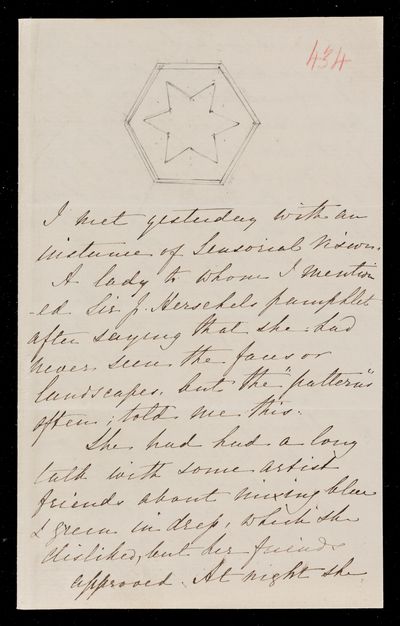 434
I met yesterday with an
instance of Sensorial Vision.
A lady to whom I mention
-ed Sir J. Herschels pamphlet
after saying that she had
never seen the faces or
landscapes, but the "patterns"
often, told me this.
She had had a long
talk with some artist
friends about mixing blue
& green in drep, which she
disliked, but her friends
approved. At night she